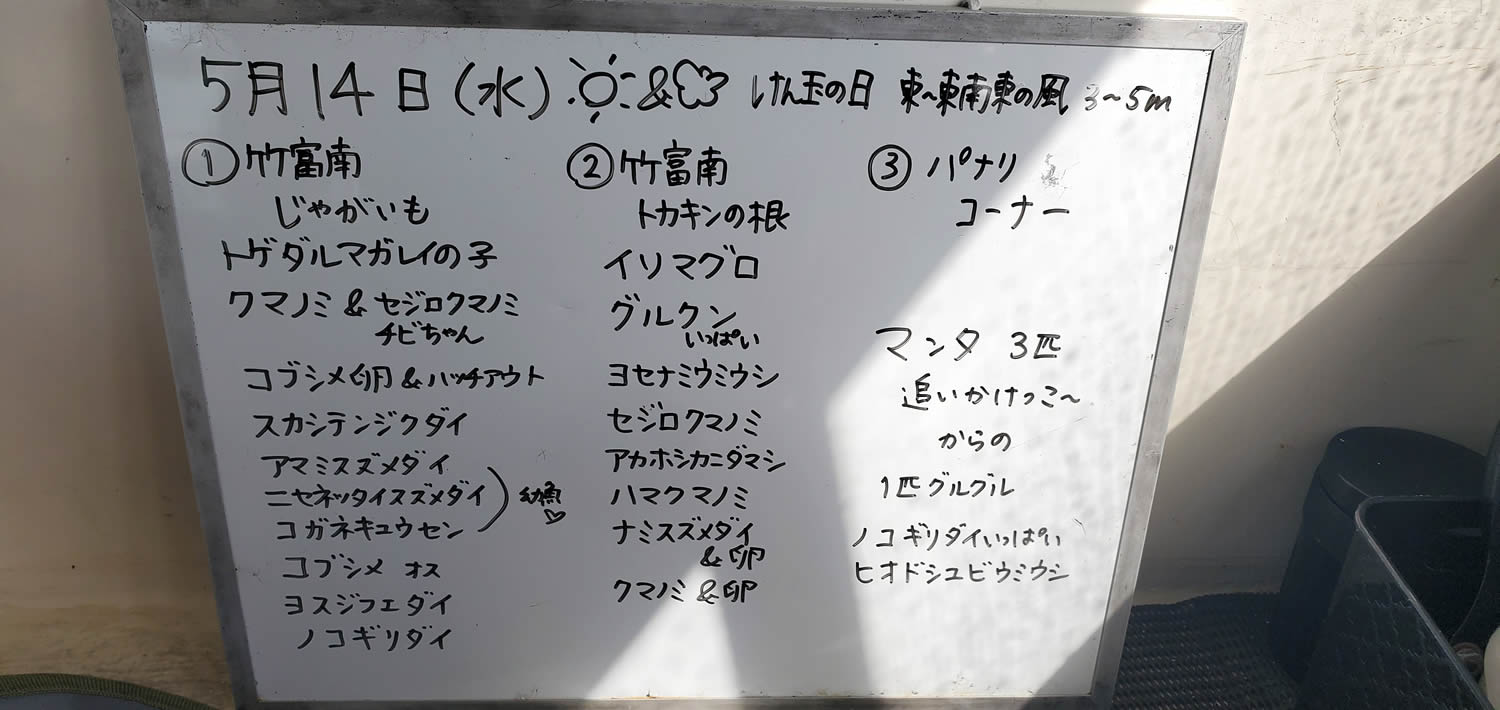 5月14日(水) & けん玉の日 東〜東南東の風 3〜5m
① 竹富南
じゃがいも
トゲダルマガレイの子
クマノミ & セジロクマノミ
チビちゃん
コブシメ卵 & ハッチアウト
スカシテンジクダイ
アマミスズメダイ
ニセネッタイスズメダイ
コガネキュウセン
幼魚♡
コブシメ オス
ヨスジフエダイ
ノコギリダイ
② 竹富南
トカキンの根
イソマグロ
グルクン
いっぱい
ヨセナミウミウシ
セジロクマノミ
アカホシカニダマシ
ハマクマノミ
ナミスズメダイ
& 卵
クマノミ & 卵
③ パナリ
コーナー
マンタ 3匹
追いかけっこ〜
からの
1匹グルグル
ノコギリダイいっぱい
ヒオドシユビウミウシ